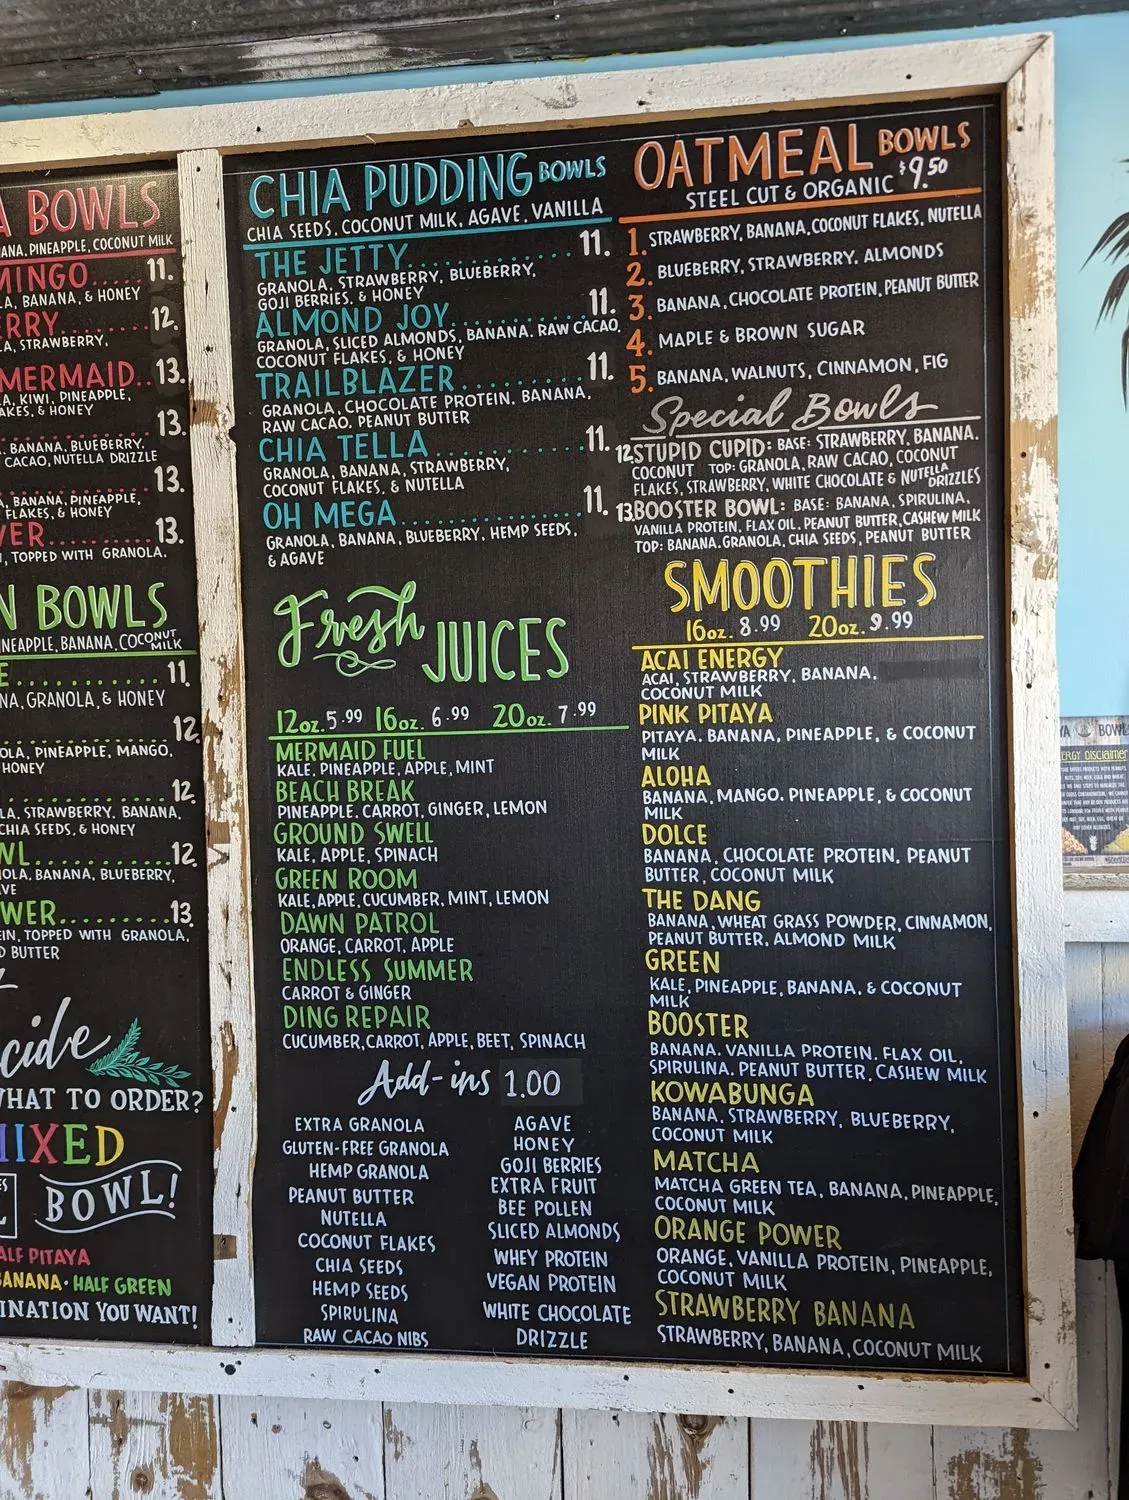 A BOWLS
ANA, PINEAPPLE, COCONUT MILK
MINGO 11.
LA, BANANA, & HONEY
ERRY........ 12.
LA, STRAWBERRY,
MERMAID.. 13.
A, KIWI, PINEAPPLE,
AKES, & HONEY
13.
, BANANA, BLUEBERRY,
CACAO, NUTELLA DRIZZLE
13.
A, BANANA, PINEAPPLE,
FLAKES, & HONEY
VER......... 13.
N, TOPPED WITH GRANOLA,
N BOWLS
INEAPPLE, BANANA, COCONUT MILK
E............ 11.
NA, GRANOLA, & HONEY
12.
OLA, PINEAPPLE, MANGO,
HONEY
12.
LA, STRAWBERRY, BANANA,
CHIA SEEDS, & HONEY
WL........... 12.
NOLA, BANANA, BLUEBERRY,
AVE
WER........ 13.
EIN, TOPPED WITH GRANOLA,
D BUTTER
cide
WHAT TO ORDER?
MIXED
BOWL!
ALF PITAYA
BANANA • HALF GREEN
INATION YOU WANT!
CHIA PUDDING BOWLS
CHIA SEEDS, COCONUT MILK, AGAVE, VANILLA
THE JETTY............... 11.
GRANOLA, STRAWBERRY, BLUEBERRY,
GOJI BERRIES, & HONEY
ALMOND JOY............ 11.
GRANOLA, SLICED ALMONDS, BANANA, RAW CACAO,
COCONUT FLAKES, & HONEY
TRAILBLAZER........... 11.
GRANOLA, CHOCOLATE PROTEIN, BANANA,
RAW CACAO, PEANUT BUTTER
CHIA TELLA............. 11.
GRANOLA, BANANA, STRAWBERRY,
COCONUT FLAKES, & NUTELLA
OH MEGA............... 11.
GRANOLA, BANANA, BLUEBERRY, HEMP SEEDS,
& AGAVE
Fresh JUICES
12oz. 5.99 16oz. 6.99 20oz. 7.99
MERMAID FUEL
KALE, PINEAPPLE, APPLE, MINT
BEACH BREAK
PINEAPPLE, CARROT, GINGER, LEMON
GROUND SWELL
KALE, APPLE, SPINACH
GREEN ROOM
KALE, APPLE, CUCUMBER, MINT, LEMON
DAWN PATROL
ORANGE, CARROT, APPLE
ENDLESS SUMMER
CARROT & GINGER
DING REPAIR
CUCUMBER, CARROT, APPLE, BEET, SPINACH
Add-ins 1.00
EXTRA GRANOLA
GLUTEN-FREE GRANOLA
HEMP GRANOLA
PEANUT BUTTER
NUTELLA
COCONUT FLAKES
CHIA SEEDS
HEMP SEEDS
SPIRULINA
RAW CACAO NIBS
AGAVE
HONEY
GOJI BERRIES
EXTRA FRUIT
BEE POLLEN
SLICED ALMONDS
WHEY PROTEIN
VEGAN PROTEIN
WHITE CHOCOLATE
DRIZZLE
OATMEAL BOWLS
STEEL CUT & ORGANIC $9.50
1. STRAWBERRY, BANANA, COCONUT FLAKES, NUTELLA
2. BLUEBERRY, STRAWBERRY, ALMONDS
3. BANANA, CHOCOLATE PROTEIN, PEANUT BUTTER
4. MAPLE & BROWN SUGAR
5. BANANA, WALNUTS, CINNAMON, FIG
Special Bowls
12. STUPID CUPID: BASE: STRAWBERRY, BANANA,
COCONUT TOP: GRANOLA, RAW CACAO, COCONUT
FLAKES, STRAWBERRY, WHITE CHOCOLATE & NUTELLA DRIZZLES
13. BOOSTER BOWL: BASE: BANANA, SPIRULINA,
VANILLA PROTEIN, FLAX OIL, PEANUT BUTTER, CASHEW MILK
TOP: BANANA, GRANOLA, CHIA SEEDS, PEANUT BUTTER
SMOOTHIES
16oz. 8.99 20oz. 9.99
ACAI ENERGY
ACAI, STRAWBERRY, BANANA,
COCONUT MILK
PINK PITAYA
PITAYA, BANANA, PINEAPPLE, & COCONUT
MILK
ALOHA
BANANA, MANGO, PINEAPPLE, & COCONUT
MILK
DOLCE
BANANA, CHOCOLATE PROTEIN, PEANUT
BUTTER, COCONUT MILK
THE DANG
BANANA, WHEAT GRASS POWDER, CINNAMON,
PEANUT BUTTER, ALMOND MILK
GREEN
KALE, PINEAPPLE, BANANA, & COCONUT
MILK
BOOSTER
BANANA, VANILLA PROTEIN, FLAX OIL,
SPIRULINA, PEANUT BUTTER, CASHEW MILK
KOWABUNGA
BANANA, STRAWBERRY, BLUEBERRY,
COCONUT MILK
MATCHA
MATCHA GREEN TEA, BANANA, PINEAPPLE,
COCONUT MILK
ORANGE POWER
ORANGE, VANILLA PROTEIN, PINEAPPLE,
COCONUT MILK
STRAWBERRY BANANA
STRAWBERRY, BANANA, COCONUT MILK
YA BOWL
ERGY DISCLAIMER